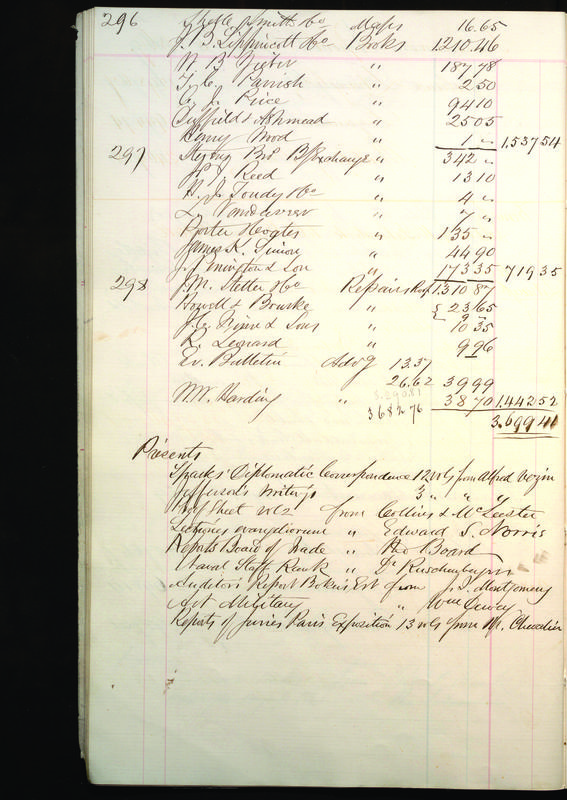 296 Smith & Co Maps 16.65
J. B. Lippincott & Co Books 1210.46
" 187 78
Parrish " 2 50
Price " 94 10
Duffield & Ashmead " 25 05
Henry " 1 " 1,537 54
297 Bro B/Exchange " 342 "
Reed " 13 10
H. J. Toudy & Co " 4 "
L. Vandevere " 7 "
Porter & Coates " 135 "
James K. Simon " 44 90
J. Penington & Son " 173 35 719 35
298 J. M. Stetter & Co Repairs 1,310 87
Howell & Bourke " 23 65
J. C. Finn & Sons " 10 35
R. Leonard " 9 96
Ev. Bulletin Advg 13.37
26.62 39 99
W. W. Harding " 38 70 1,442 52
3682 76 3,699 41
Presents
Sparks' Diplomatic Correspondence 12 vols from Alfred
Jefferson's Writings 3 " " "
Sheet vol 2 from Collins & McLeester
Lectiones evangeliorum " Edward S. Norris
Reports Board of Trade " The Board
Naval Staff Rank " Dr Ruschenberger
Auditor's Report Est from J. S. Montgomery
Art Military " Wm Dewey
Reports of Juries Paris Exposition 13 vols from M. Chevalier